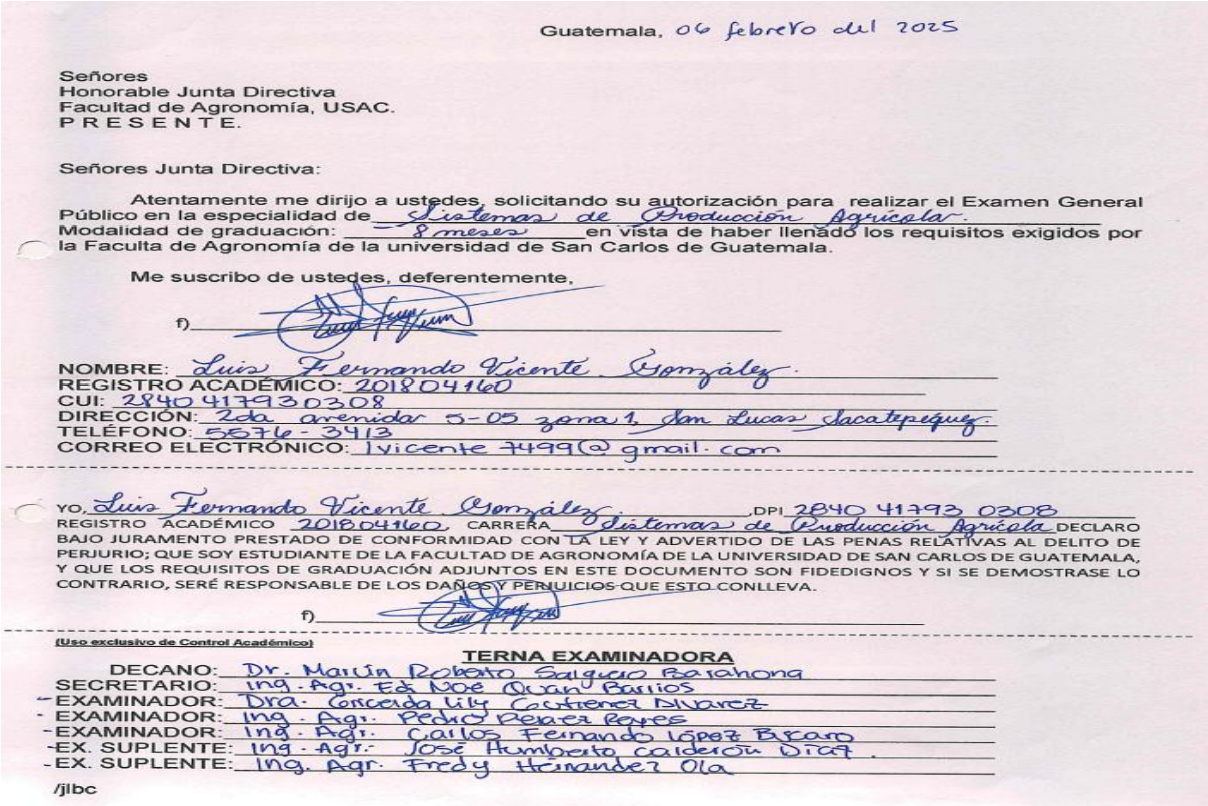 Guatemala, 06 febrero del 2025
Señores
Honorable Junta Directiva
Facultad de Agronomía, USAC.
P R E S E N T E.
Señores Junta Directiva:
Atentamente me dirijo a ustedes, solicitando su autorización para realizar el Examen General
Público en la especialidad de Sistemas de Producción Agrícola.
Modalidad de graduación: 8 meses en vista de haber llenado los requisitos exigidos por
la Faculta de Agronomía de la universidad de San Carlos de Guatemala.
Me suscribo de ustedes, deferentemente,
f)
NOMBRE: Luis Fernando Vicente González.
REGISTRO ACADÉMICO: 201804160
CUI: 2840 41793 0308
DIRECCIÓN: 2da avenida 5-05 zona 1, San Lucas Sacatepequez.
TELÉFONO: 5576-3413
CORREO ELECTRÓNICO: lvicente7499@gmail.com
YO, Luis Fernando Vicente González, DPI 2840 41793 0308
REGISTRO ACADÉMICO 201804160, CARRERA Sistemas de Producción Agrícola DECLARO
BAJO JURAMENTO PRESTADO DE CONFORMIDAD CON LA LEY Y ADVERTIDO DE LAS PENAS RELATIVAS AL DELITO DE
PERJURIO; QUE SOY ESTUDIANTE DE LA FACULTAD DE AGRONOMÍA DE LA UNIVERSIDAD DE SAN CARLOS DE GUATEMALA,
Y QUE LOS REQUISITOS DE GRADUACIÓN ADJUNTOS EN ESTE DOCUMENTO SON FIDEDIGNOS Y SI SE DEMOSTRASE LO
CONTRARIO, SERÉ RESPONSABLE DE LOS DAÑOS Y PERJUICIOS QUE ESTO CONLLEVA.
f)
(Uso exclusivo de Control Académico)
TERNA EXAMINADORA
DECANO: Dr. Marvin Roberto Salguero Barahona
SECRETARIO: Ing. Agr. Edi Noé Quan Barrios
- EXAMINADOR: Dra. Lily Gutierrez Alvarez
- EXAMINADOR: Ing. Agr. Pedro Pelaez Reyes
- EXAMINADOR: Ing. Agr. Carlos Fernando López Bucaro
- EX. SUPLENTE: Ing. Agr. José Humberto Calderón Díaz
- EX. SUPLENTE: Ing. Agr. Fredy Hernández Ola
/jlbc